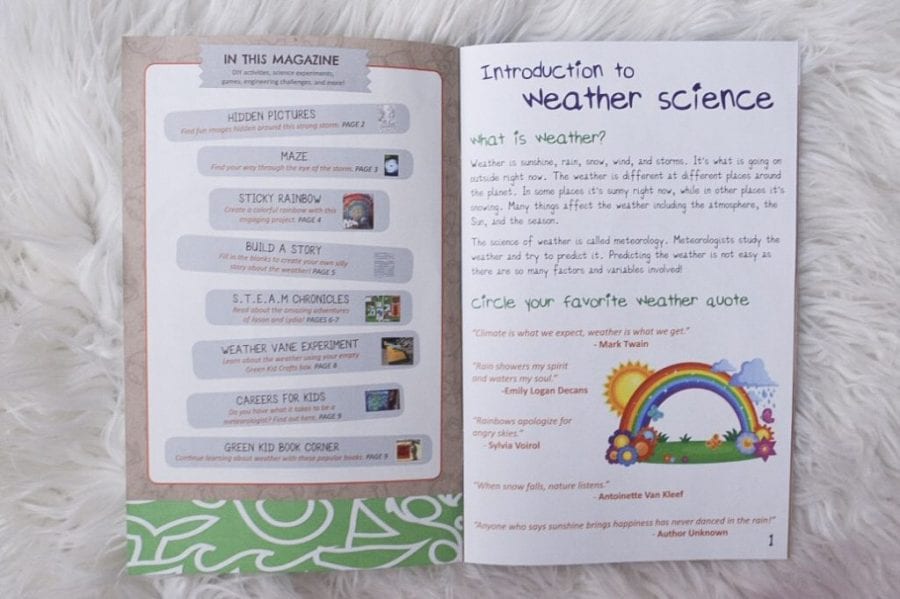 IN THIS MAGAZINE
DIY activities, science experiments,
games, engineering challenges, and more!
HIDDEN PICTURES
Find fun images hidden around this strong storm. PAGE 2
MAZE
Find your way through the eye of the storm. PAGE 3
STICKY RAINBOW
Create a colorful rainbow with this
engaging project. PAGE 4
BUILD A STORY
Fill in the blanks to create your own silly
story about the weather! PAGE 5
S.T.E.A.M CHRONICLES
Read about the amazing adventures
of Jason and Lydia! PAGES 6-7
WEATHER VANE EXPERIMENT
Learn about the weather using your empty
Green Kid Crafts box. PAGE 8
CAREERS FOR KIDS
Do you have what it takes to be a
meteorologist? Find out here. PAGE 9
GREEN KID BOOK CORNER
Continue learning about weather with these popular books. PAGE 9
Introduction to
weather science
What is weather?
Weather is sunshine, rain, snow, wind, and storms. It's what is going on
outside right now. The weather is different at different places around
the planet. In some places it's sunny right now, while in other places it's
snowing. Many things affect the weather including the atmosphere, the
Sun, and the season.
The science of weather is called meteorology. Meteorologists study the
weather and try to predict it. Predicting the weather is not easy as
there are so many factors and variables involved!
Circle your favorite weather quote
"Climate is what we expect, weather is what we get."
- Mark Twain
"Rain showers my spirit
and waters my soul."
-Emily Logan Decans
"Rainbows apologize for
angry skies."
- Sylvia Voirol
"When snow falls, nature listens."
- Antoinette Van Kleef
"Anyone who says sunshine brings happiness has never danced in the rain!"
- Author Unknown
1